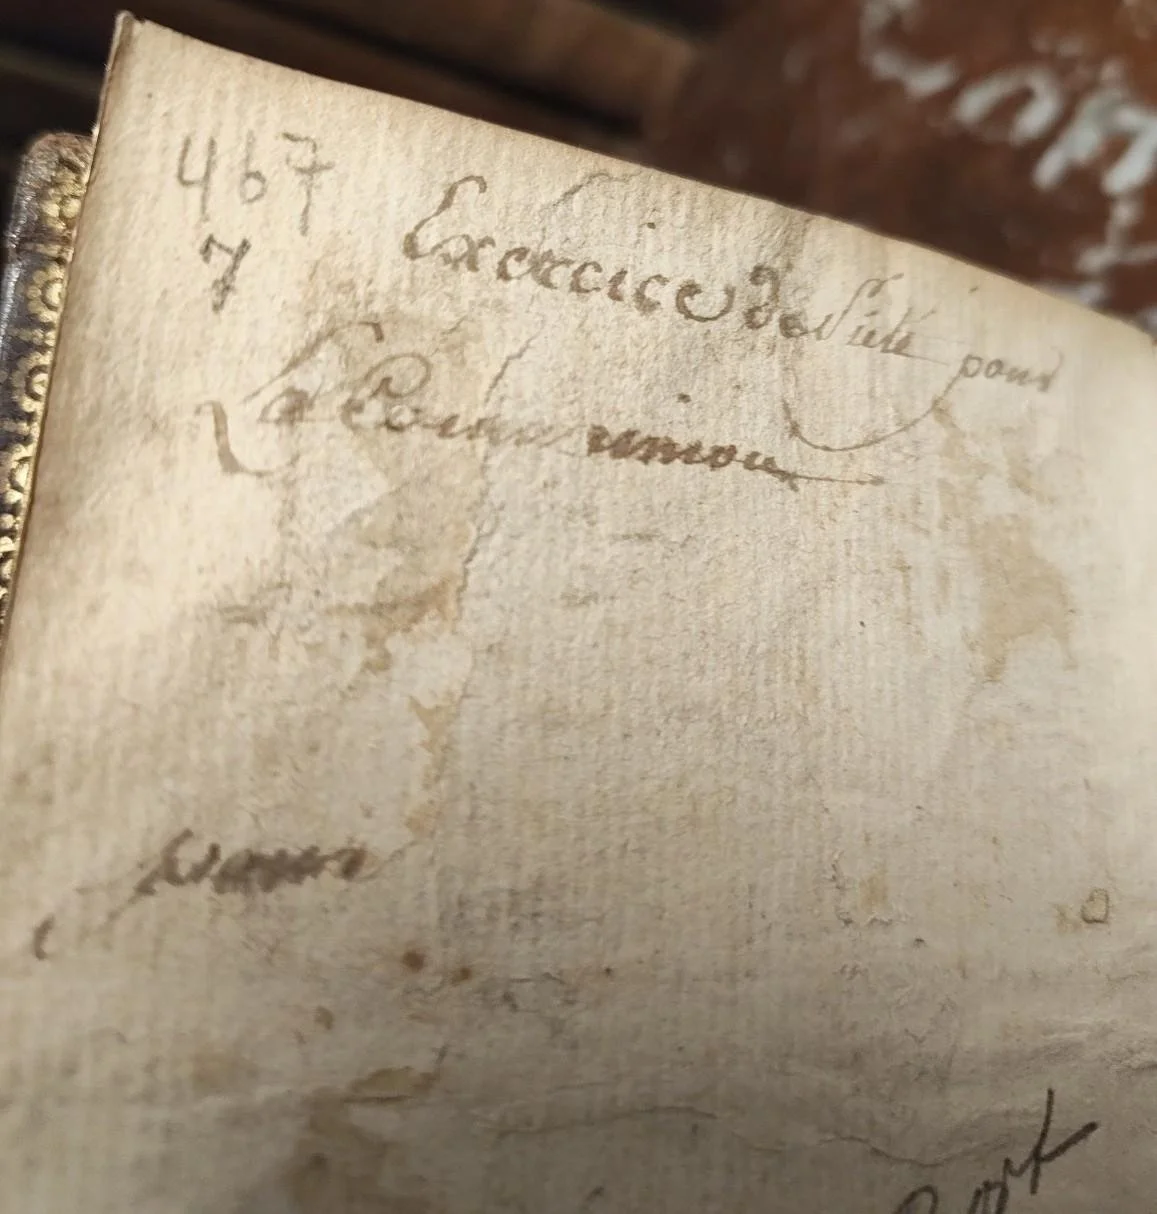 467
7
Exercice de Piété pour
La Communion